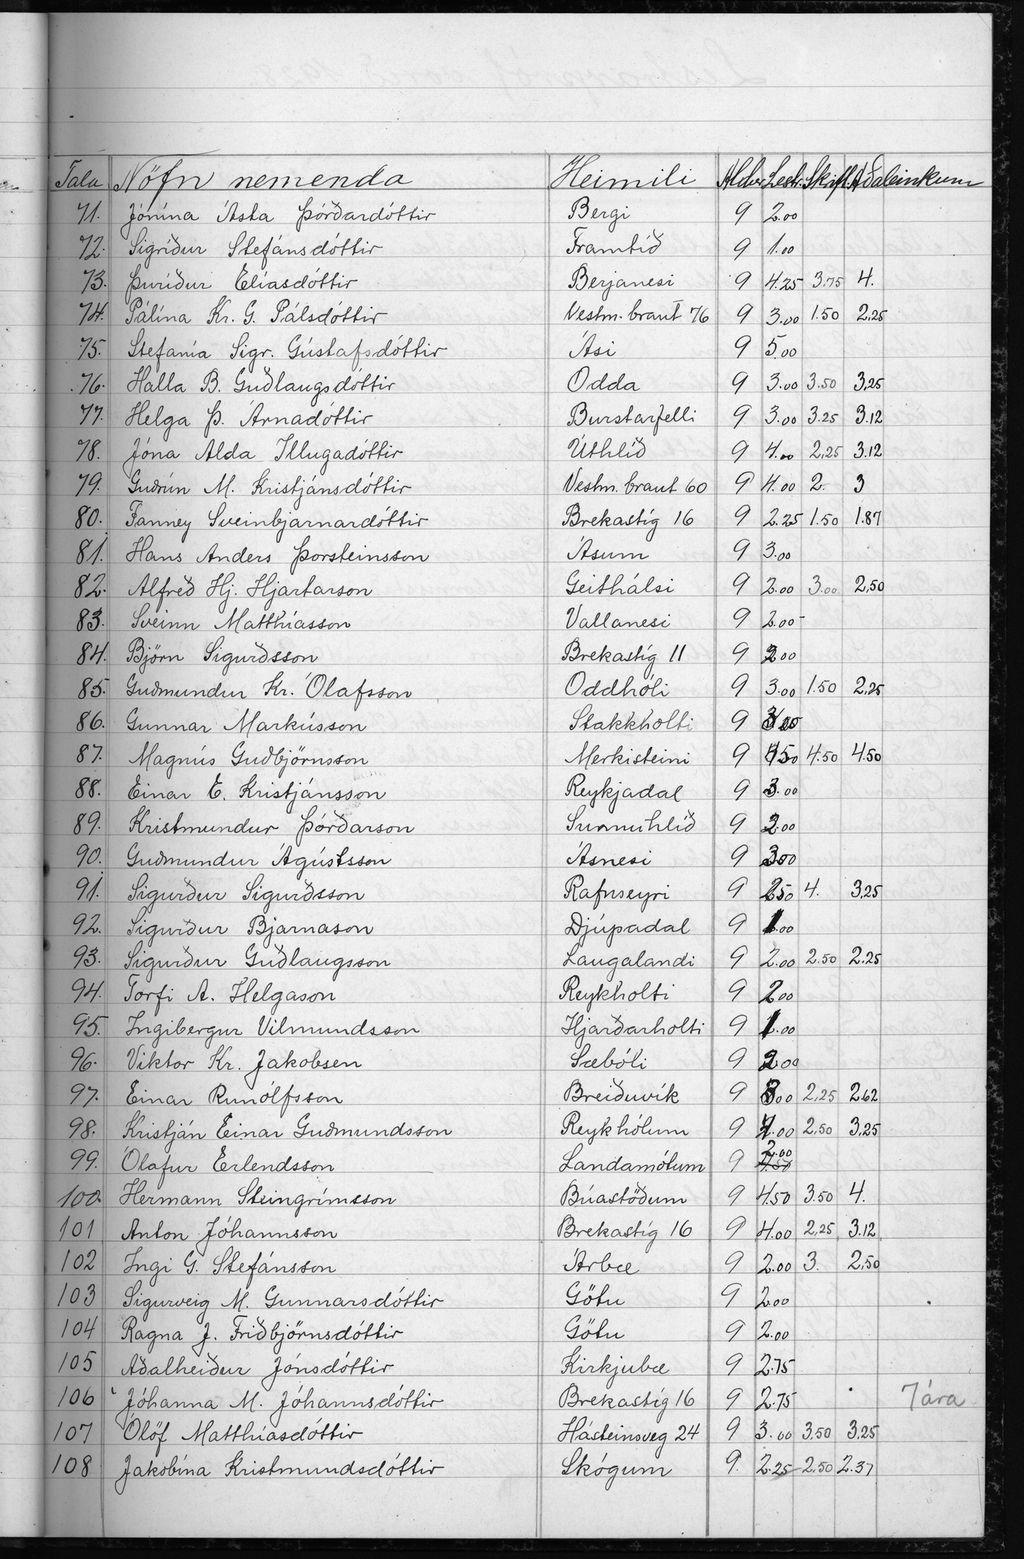 Tala Nöfn nemenda Heimili Aldur Lestr. Skrift Aðaleinkunn
71. Jónína Ásta Þórðardóttir Bergi 9 2.00
72. Sigríður Stefánsdóttir Framtíð 9 1.00
73. Þuríður Elíasdóttir Berjanesi 9 4.25 3.75 4.
74. Pálína Kr. G. Pálsdóttir Vestm.braut 76 9 3.00 1.50 2.25
75. Stefanía Sigr. Gústafsdóttir Ási 9 5.00
76. Halla B. Guðlaugsdóttir Odda 9 3.00 3.50 3.25
77. Helga Þ. Árnadóttir Burstarfelli 9 3.00 3.25 3.12
78. Jóna Alda Illugadóttir Úthlíð 9 4.00 2.25 3.12
79. Guðrún M. Kristjánsdóttir Vestm.braut 60 9 4.00 2. 3
80. Fanney Sveinbjarnardóttir Brekastíg 16 9 2.25 1.50 1.87
81. Hans Anders Þorsteinsson Ásum 9 3.00
82. Alfreð Hj. Hjartarson Geithálsi 9 2.00 3.00 2.50
83. Sveinn Matthíasson Vallanesi 9 2.00-
84. Björn Sigurðsson Brekastíg 11 9 2.00
85. Guðmundur Kr. Ólafsson Oddhóli 9 3.00 1.50 2.25
86. Gunnar Markússon Stakkholti 9
87. Magnús Guðbjörnsson Merkisteini 9 4.50 4.50 4.50
88. Einar E. Kristjánsson Reykjadal 9 3.00
89. Kristmundur Þórðarson Sunnuhlíð 9 2.00
90. Guðmundur Ágústsson Ásnesi 9 3.00
91. Sigurður Sigurðsson Rafnseyri 9 2.50 4. 3.25
92. Sigurður Bjarnason Djúpadal 9 1.00
93. Sigurður Guðlaugsson Laugalandi 9 2.00 2.50 2.25
94. Torfi A. Helgason Reykholti 9 2.00
95. Ingibergur Vilmundsson Hjarðarholti 9 1.00
96. Viktor Kr. Jakobsen Sæbóli 9 2.00
97. Einar Runólfsson Breiðuvík 9 3.00 2.25 2.62
98. Kristján Einar Guðmundsson Reykhólum 9 4.00 2.50 3.25
99. Ólafur Erlendsson Landamótum 9 2.00
100. Hermann Steingrímsson Búastöðum 9 4.50 3.50 4.
101 Anton Jóhannsson Brekastíg 16 9 4.00 2.25 3.12
102 Ingi G. Stefánsson Árbæ 9 2.00 3. 2.50
103 Sigurveig M. Gunnarsdóttir Götu 9 2.00
104 Ragna J. Friðbjörnsdóttir Götu 9 2.00
105 Aðalheiður Jónsdóttir Kirkjubæ 9 2.75
106 Jóhanna M. Jóhannsdóttir Brekastíg 16 9 2.75 7 ára
107 Ólöf Matthíasdóttir Hásteinsveg 24 9 3.00 3.50 3.25
108 Jakobína Kristmundsdóttir Skógum 9. 2.25 2.50 2.37